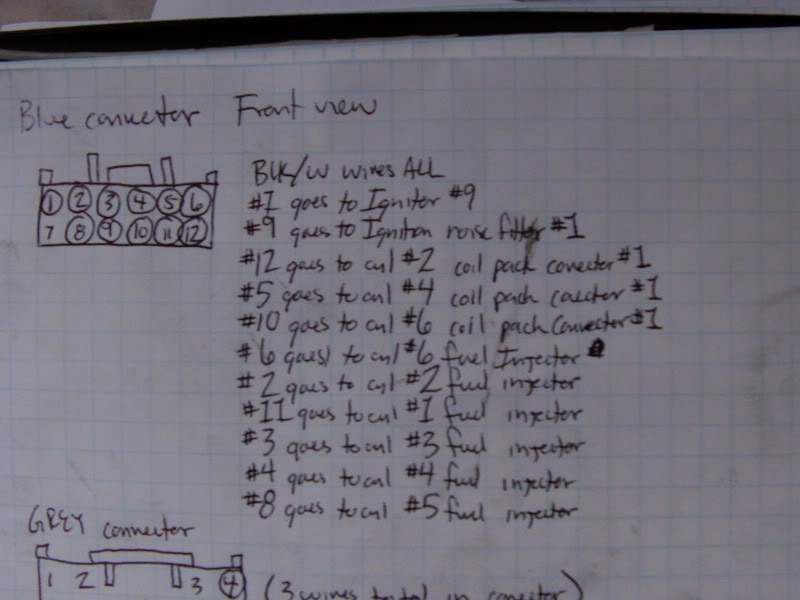 Blue connector Front view
BLK/W wires ALL
① ② ③ ④ ⑤ ⑥
7 ⑧ ⑨ ⑩ ⑪ ⑫
#1 goes to Igniter #9
#9 goes to Ignition noise filter #1
#12 goes to cyl #2 coil pack conector #1
#5 goes to cyl #4 coil pack coector #1
#10 goes to cyl #6 coil pack Connector #1
#6 goes) to cyl #6 fuel Injector
#2 goes to cyl #2 fuel injector
#11 goes to cyl #1 fuel injector
#3 goes to cyl #3 fuel injector
#4 goes to cyl #4 fuel injector
#8 goes to cyl #5 fuel injector
GREY connector
1 2 3 ④
(3 wires total in conector)